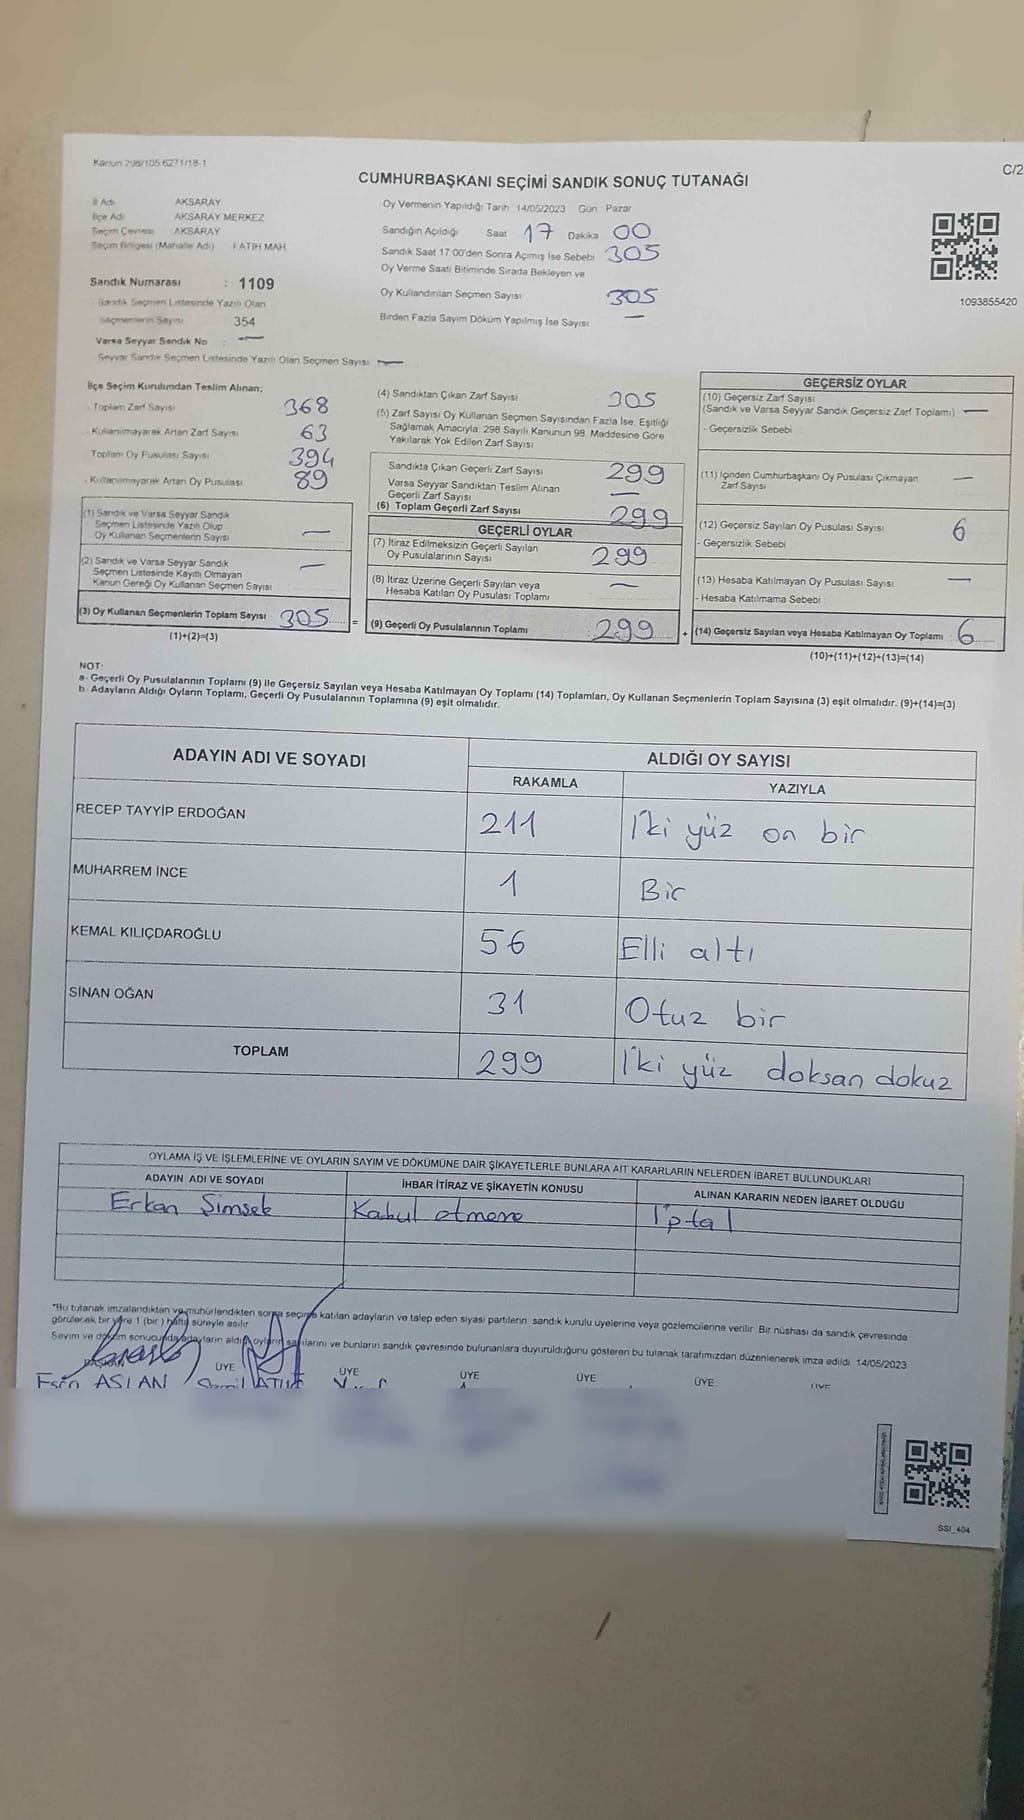 Kanun 298/105 6271/18-1
C/2
CUMHURBAŞKANI SEÇİMİ SANDIK SONUÇ TUTANAĞI
İl Adı AKSARAY
İlçe Adı AKSARAY MERKEZ
Seçim Çevresi AKSARAY
Seçim Bölgesi (Mahalle Adı) FATİH MAH.
Sandık Numarası : 1109
- Sandık Seçmen Listesinde Yazılı Olan
Seçmenlerin Sayısı 354
Varsa Seyyar Sandık No : —
- Seyyar Sandık Seçmen Listesinde Yazılı Olan Seçmen Sayısı —
Oy Vermenin Yapıldığı Tarih : 14/05/2023 Gün : Pazar
Sandığın Açıldığı Saat 17 Dakika 00
Sandık Saat 17:00'den Sonra Açımış İse Sebebi 305
Oy Verme Saati Bitiminde Sırada Bekleyen ve
Oy Kullandırılan Seçmen Sayısı 305
Birden Fazla Sayım Döküm Yapılmış İse Sayısı —
1093855420
İlçe Seçim Kurulundan Teslim Alınan;
- Toplam Zarf Sayısı 368
- Kullanılmayarak Artan Zarf Sayısı 63
- Toplam Oy Pusulası Sayısı 394
- Kullanılmayarak Artan Oy Pusulası 89
(1) Sandık ve Varsa Seyyar Sandık
Seçmen Listesinde Yazılı Olup
Oy Kullanan Seçmenlerin Sayısı —
(2) Sandık ve Varsa Seyyar Sandık
Seçmen Listesinde Kayıtlı Olmayan
Kanun Gereği Oy Kullanan Seçmen Sayısı —
(3) Oy Kullanan Seçmenlerin Toplam Sayısı 305 =
(1)+(2)=(3)
(4) Sandıktan Çıkan Zarf Sayısı 305
(5) Zarf Sayısı Oy Kullanan Seçmen Sayısından Fazla İse, Eşitliği
Sağlamak Amacıyla, 298 Sayılı Kanunun 98. Maddesine Göre
Yakılarak Yok Edilen Zarf Sayısı
Sandıkta Çıkan Geçerli Zarf Sayısı 299
Varsa Seyyar Sandıktan Teslim Alınan
Geçerli Zarf Sayısı —
(6) Toplam Geçerli Zarf Sayısı 299
GEÇERLİ OYLAR
(7) İtiraz Edilmeksizin Geçerli Sayılan
Oy Pusulalarının Sayısı 299
(8) İtiraz Üzerine Geçerli Sayılan veya
Hesaba Katılan Oy Pusulası Toplamı —
(9) Geçerli Oy Pusulalarının Toplamı : 299 +
GEÇERSİZ OYLAR
(10) Geçersiz Zarf Sayısı
(Sandık ve Varsa Seyyar Sandık Geçersiz Zarf Toplamı) —
- Geçersizlik Sebebi :
(11) İçinden Cumhurbaşkanı Oy Pusulası Çıkmayan
Zarf Sayısı —
(12) Geçersiz Sayılan Oy Pusulası Sayısı 6
- Geçersizlik Sebebi
(13) Hesaba Katılmayan Oy Pusulası Sayısı —
- Hesaba Katılmama Sebebi
(14) Geçersiz Sayılan veya Hesaba Katılmayan Oy Toplamı : 6
(10)+(11)+(12)+(13)=(14)
NOT:
a- Geçerli Oy Pusulalarının Toplamı (9) ile Geçersiz Sayılan veya Hesaba Katılmayan Oy Toplamı (14) Toplamları, Oy Kullanan Seçmenlerin Toplam Sayısına (3) eşit olmalıdır. (9)+(14)=(3)
b- Adayların Aldığı Oyların Toplamı, Geçerli Oy Pusulalarının Toplamına (9) eşit olmalıdır.
ADAYIN ADI VE SOYADI ALDIĞI OY SAYISI
RAKAMLA YAZIYLA
RECEP TAYYİP ERDOĞAN 211 İki yüz on bir
MUHARREM İNCE 1 Bir
KEMAL KILIÇDAROĞLU 56 Elli altı
SİNAN OĞAN 31 Otuz bir
TOPLAM 299 İki yüz doksan dokuz
OYLAMA İŞ VE İŞLEMLERİNE VE OYLARIN SAYIM VE DÖKÜMÜNE DAİR ŞİKAYETLERLE BUNLARA AİT KARARLARIN NELERDEN İBARET BULUNDUKLARI
ADAYIN ADI VE SOYADI İHBAR İTİRAZ VE ŞİKAYETİN KONUSU ALINAN KARARIN NEDEN İBARET OLDUĞU
Erkan Şimşek Kabul etmeme İptal
*Bu tutanak imzalandıktan ve mühürlendikten sonra seçime katılan adayların ve talep eden siyasi partilerin sandık kurulu üyelerine veya gözlemcilerine verilir. Bir nüshası da sandık çevresinde
görülecek bir yere 1 (bir) hafta süreyle asılır
Sayım ve döküm sonucunda adayların aldığı oyların sayılarını ve bunların sandık çevresinde bulunanlara duyurulduğunu gösteren bu tutanak tarafımızdan düzenlenerek imza edildi. 14/05/2023
BAŞKAN ÜYE ÜYE ÜYE ÜYE ÜYE ÜYE
ASLAN
SSI_404